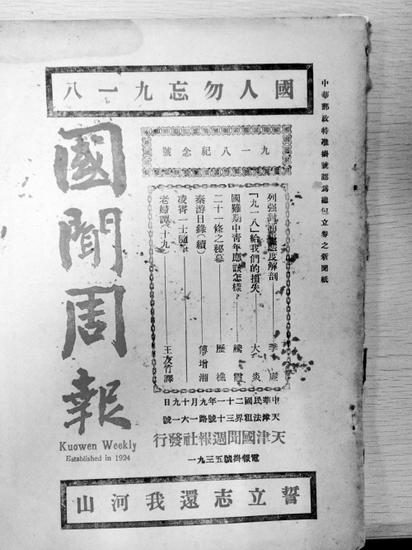 國人勿忘九一八
中華郵政特准掛號認爲總包立券之新聞紙
國聞周報
Kuowen Weekly
Established in 1924
九一八紀念號
列强對態度解剖 季廉
「九一八」給我們的損失 大炎
國難期中青年應該怎樣？
二十一條之秘幕 歷樵
秦游日錄（續） 傅增湘
凌霄一士隨筆
老婦譚（十九） 王友竹譯
中華民國二十一年九月十九日
天津法租界三十號路一六一號
天津國聞週報社發行
電報掛號五三九一
誓立志還我河山